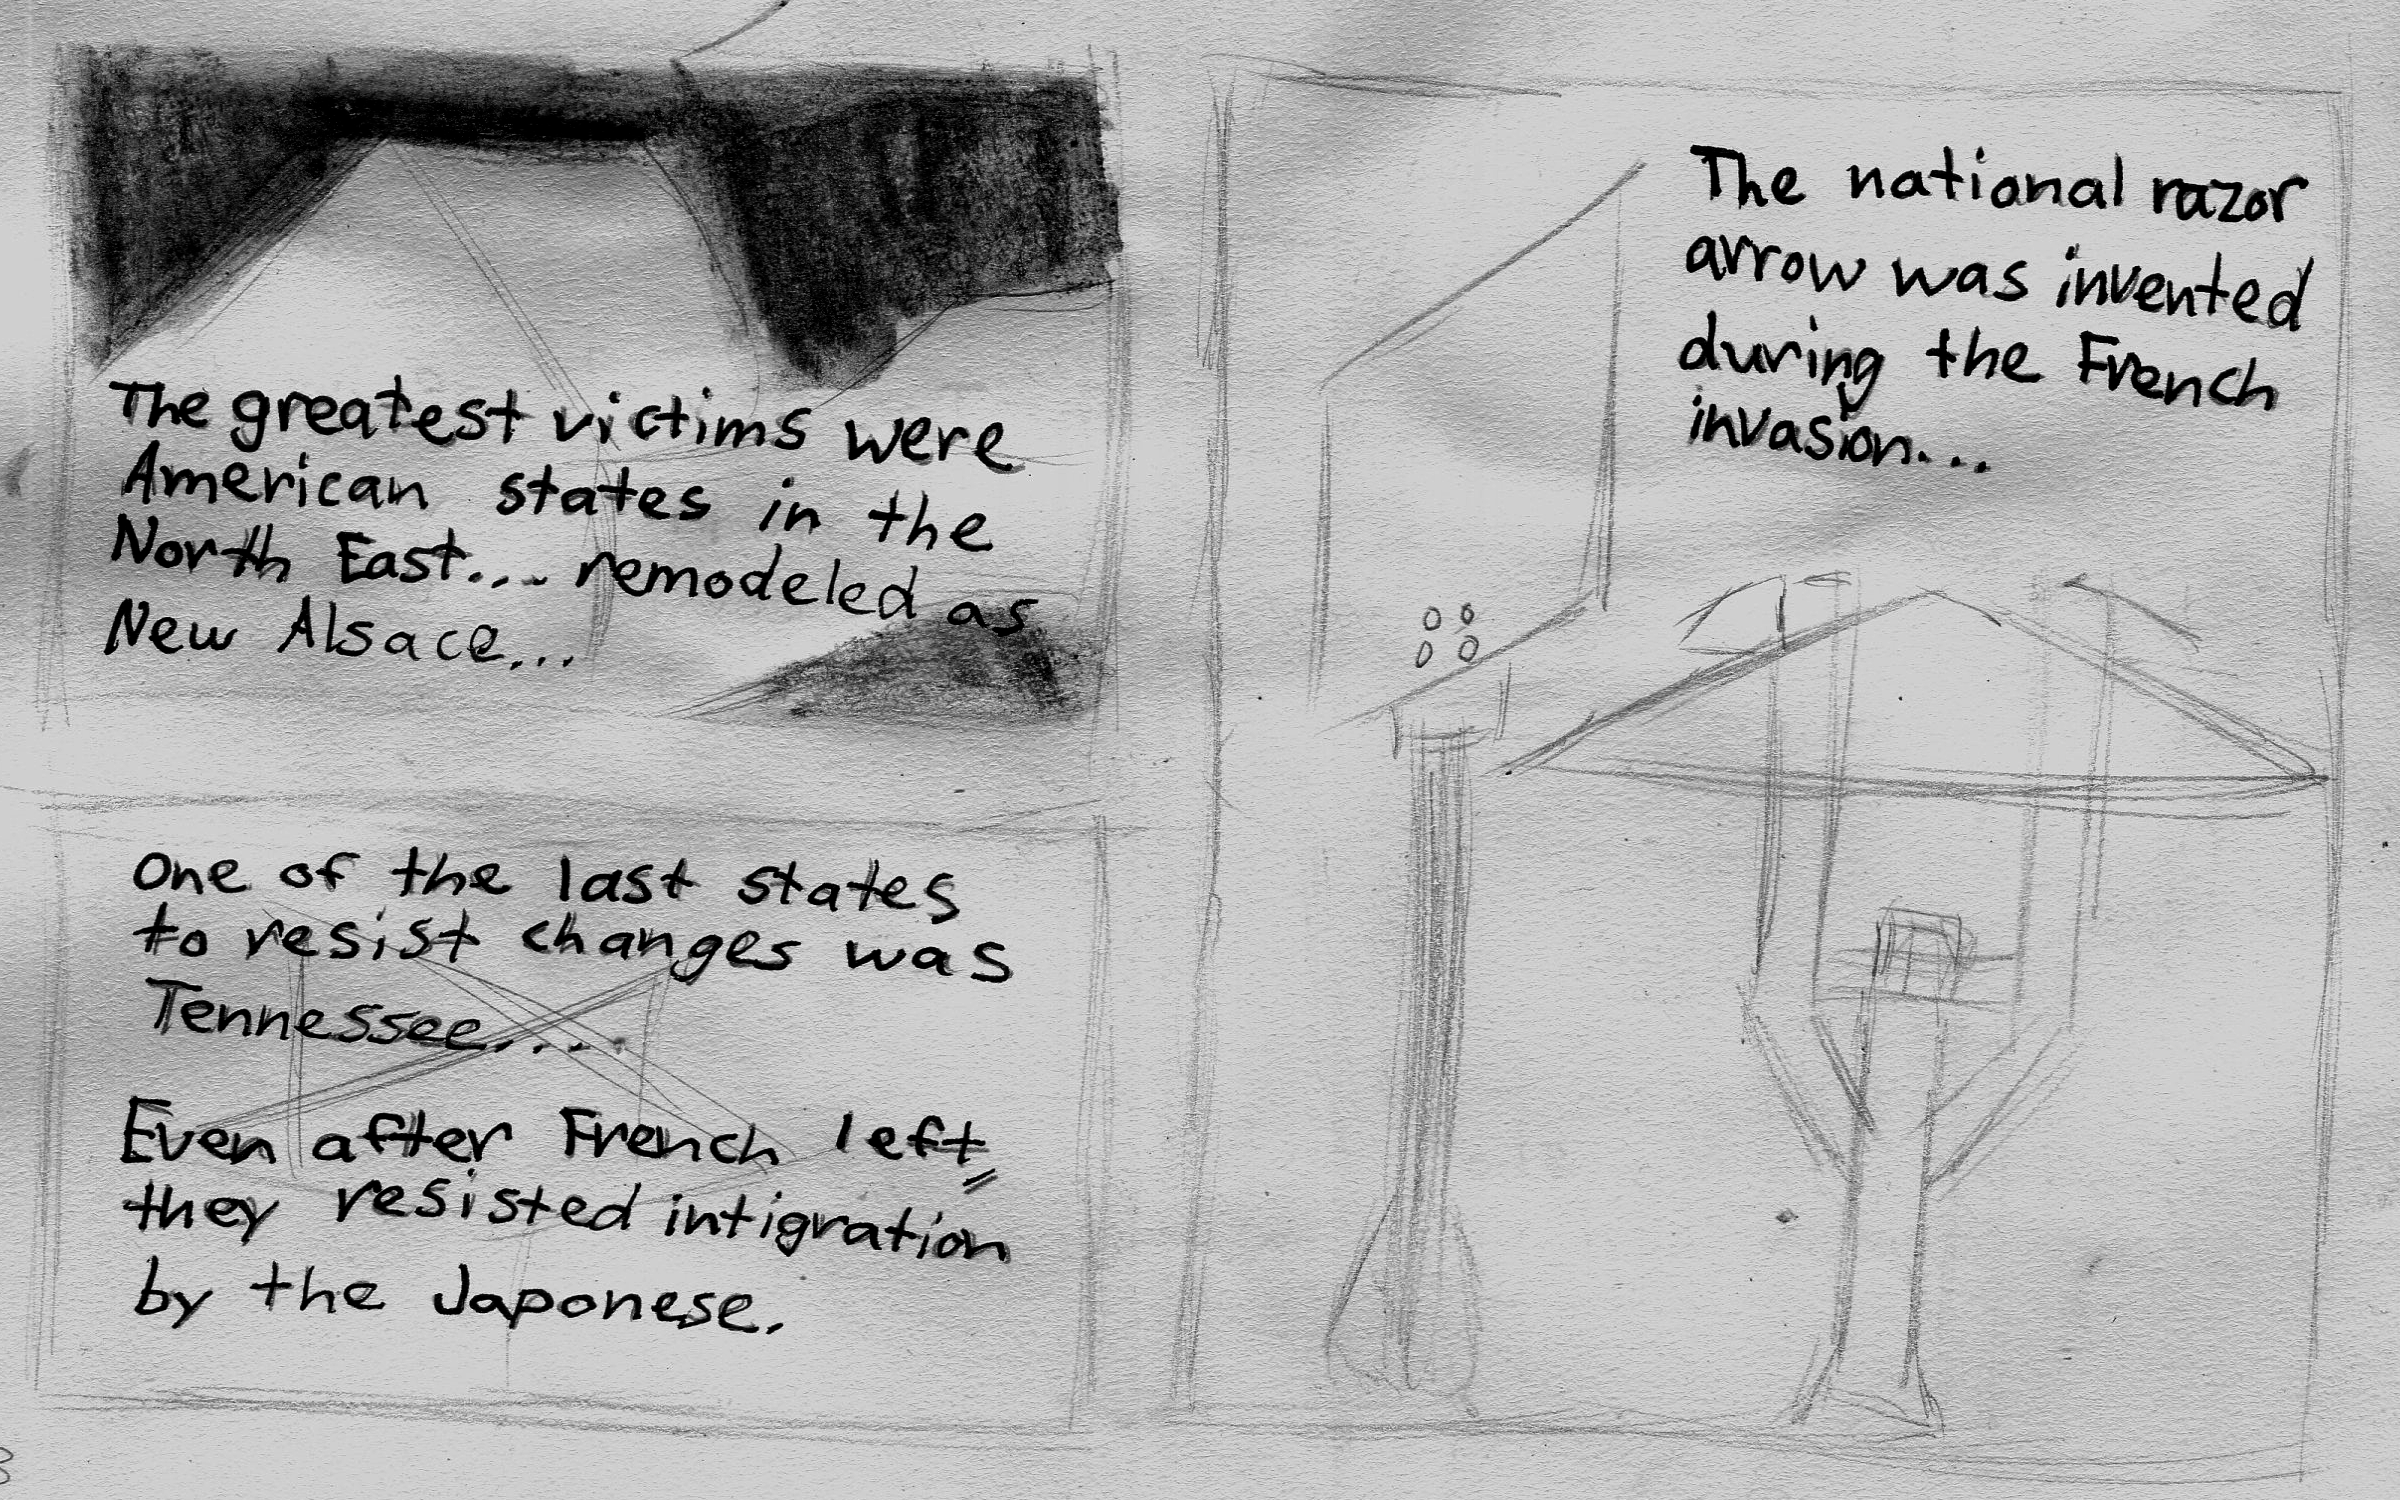 The greatest victims were
American states in the
North East.... remodeled as
New Alsace...
One of the last states
to resist changes was
Tennessee....
Even after French left,
they resisted intigration
by the Japonese.
The national razor
arrow was invented
during the French
invasion...